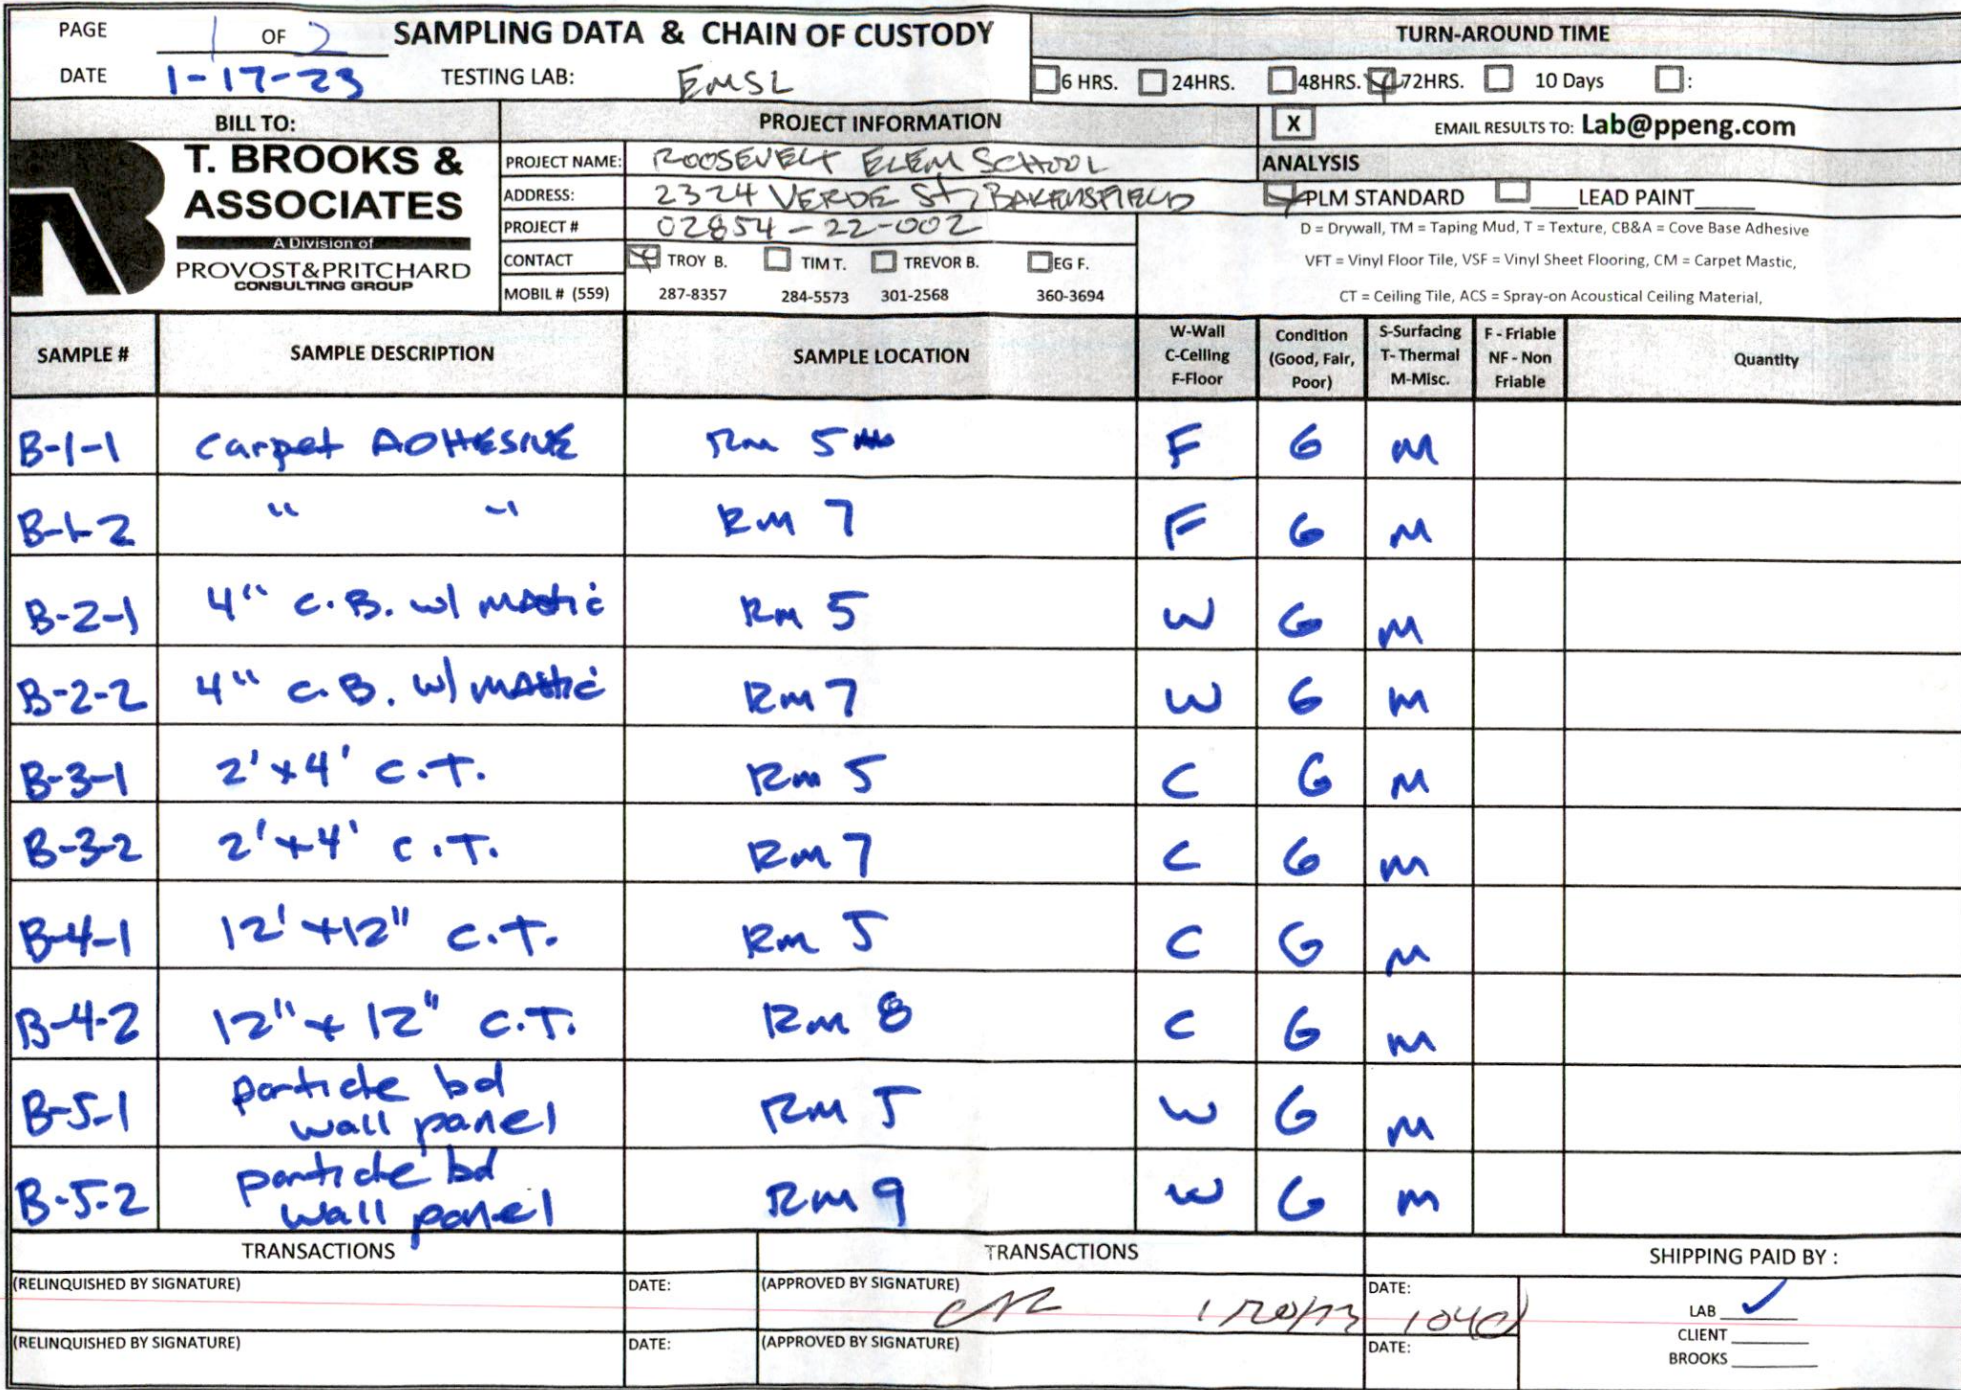 PAGE 1 OF 2 SAMPLING DATA & CHAIN OF CUSTODY TURN-AROUND TIME
DATE 1-17-23 TESTING LAB: EMSL 6 HRS. 24HRS. 48HRS. 72HRS. 10 Days :
BILL TO: PROJECT INFORMATION X EMAIL RESULTS TO: Lab@ppeng.com
T. BROOKS & ASSOCIATES
A Division of
PROVOST&PRITCHARD
CONSULTING GROUP
PROJECT NAME: ROOSEVELT ELEM SCHOOL
ADDRESS: 2324 VERDE St, BAKERSFIELD
PROJECT # 02854-22-002
CONTACT TROY B. TIM T. TREVOR B. EG F.
MOBIL # (559) 287-8357 284-5573 301-2568 360-3694
ANALYSIS
PLM STANDARD LEAD PAINT
D = Drywall, TM = Taping Mud, T = Texture, CB&A = Cove Base Adhesive
VFT = Vinyl Floor Tile, VSF = Vinyl Sheet Flooring, CM = Carpet Mastic,
CT = Ceiling Tile, ACS = Spray-on Acoustical Ceiling Material,
SAMPLE # SAMPLE DESCRIPTION SAMPLE LOCATION W-Wall C-Ceiling F-Floor Condition (Good, Fair, Poor) S-Surfacing T- Thermal M-Misc. F - Friable NF - Non Friable Quantity
B-1-1 Carpet ADHESIVE Rm 5 F G M
B-1-2 " " Rm 7 F G M
B-2-1 4" C.B. w/ mastic Rm 5 W G M
B-2-2 4" C.B. w/ mastic Rm 7 W G M
B-3-1 2'x4' C.T. Rm 5 C G M
B-3-2 2'x4' C.T. Rm 7 C G M
B-4-1 12'x12" C.T. Rm 5 C G M
B-4-2 12"x12" C.T. Rm 8 C G M
B-5-1 particle bd wall panel Rm 5 W G M
B-5-2 particle bd wall panel Rm 9 W G M
TRANSACTIONS TRANSACTIONS SHIPPING PAID BY :
(RELINQUISHED BY SIGNATURE) DATE: (APPROVED BY SIGNATURE) DATE: 1040
LAB ✓
CLIENT
BROOKS
(RELINQUISHED BY SIGNATURE) DATE: (APPROVED BY SIGNATURE) DATE: